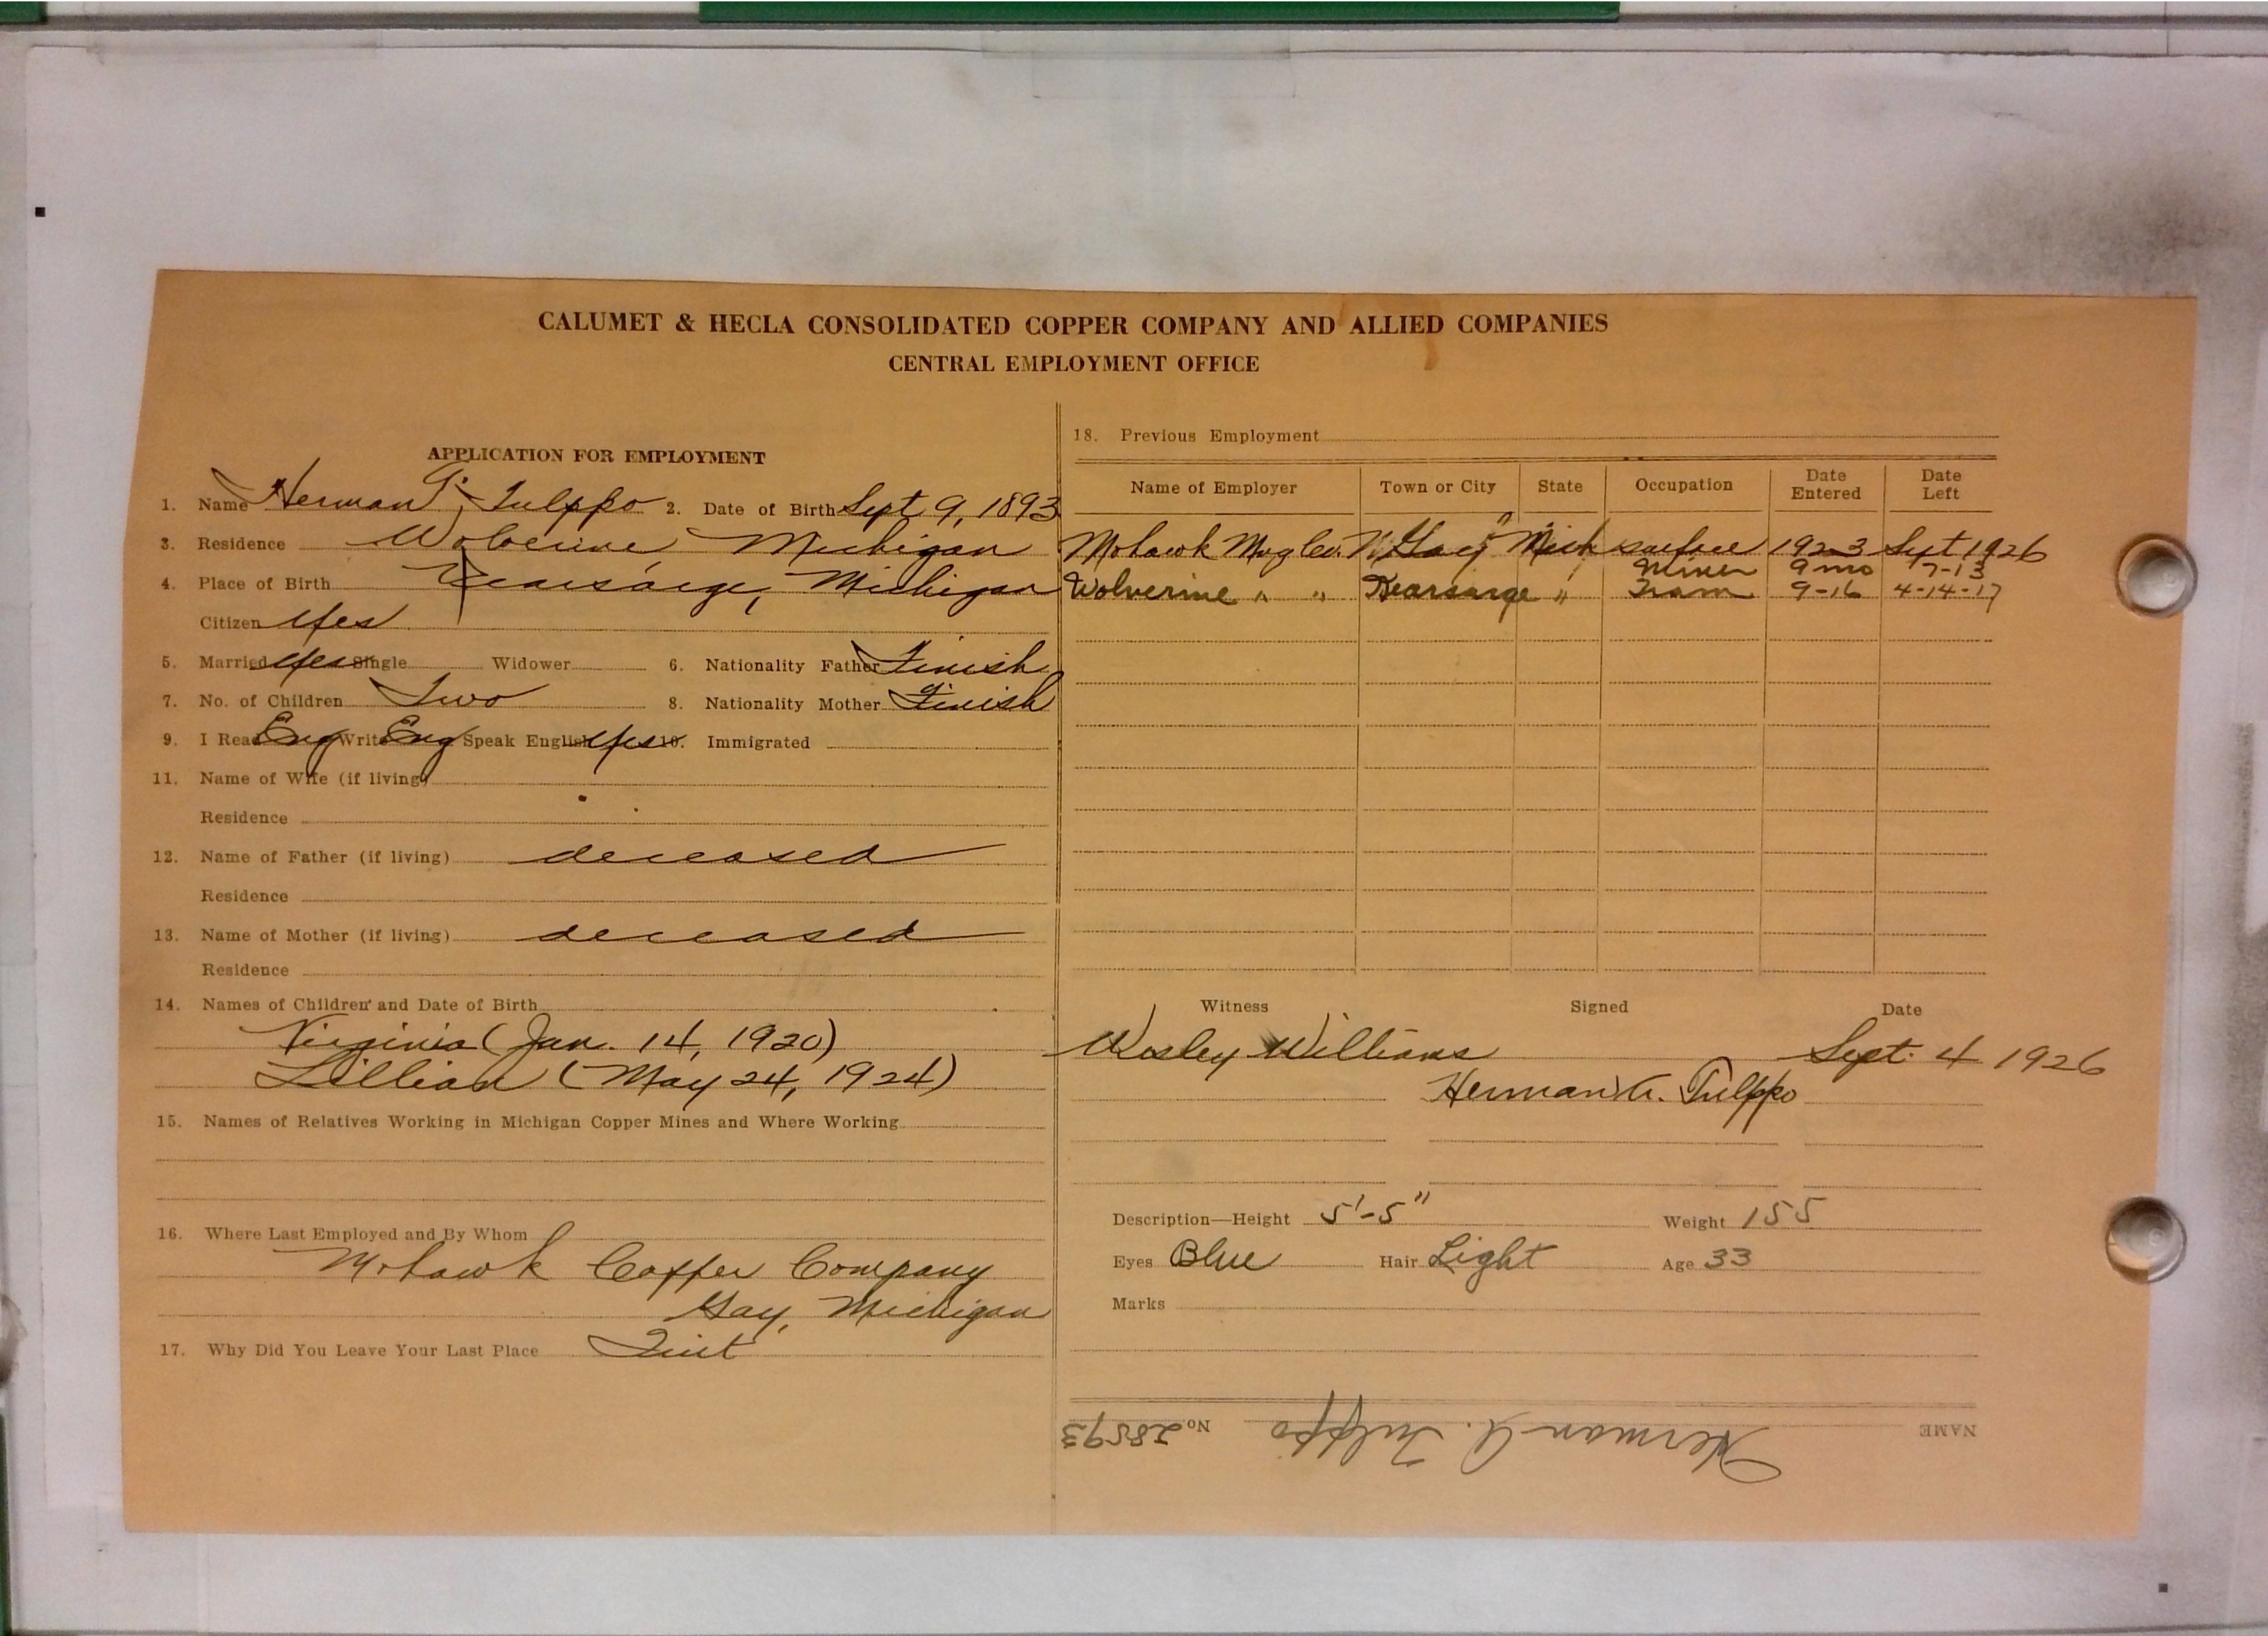 CALUMET & HECLA CONSOLIDATED COPPER COMPANY AND ALLIED COMPANIES
CENTRAL EMPLOYMENT OFFICE
APPLICATION FOR EMPLOYMENT
1. Name Herman Tulppo 2. Date of Birth Sept 9, 1893
3. Residence Wolverine, Michigan
4. Place of Birth Kearsarge, Michigan
Citizen Yes
5. Married Yes Single Widower 6. Nationality Father Finish
7. No. of Children Two 8. Nationality Mother Finish
9. I Read Eng Write Eng Speak English Yes 10. Immigrated
11. Name of Wife (if living)
Residence
12. Name of Father (if living) deceased
Residence
13. Name of Mother (if living) deceased
Residence
14. Names of Children and Date of Birth
Virginia (Jan. 14, 1920)
Lillian (May 24, 1924)
15. Names of Relatives Working in Michigan Copper Mines and Where Working
16. Where Last Employed and By Whom
Mohawk Copper Company
Gay, Michigan
17. Why Did You Leave Your Last Place Quit
18. Previous Employment
Name of Employer Town or City State Occupation Date Entered Date Left
Mohawk Mng Co. Gay Mich surface 1923 Sept 1926
Miner 9 mo 7-13
Wolverine " " Kearsarge " Tram 9-16 4-14-17
Witness Signed Date
Wesley Williams Sept. 4 1926
Herman A. Tulppo
Description—Height 5'-5" Weight 155
Eyes Blue Hair Light Age 33
Marks
NAME Herman A. Tulppo No. 28593